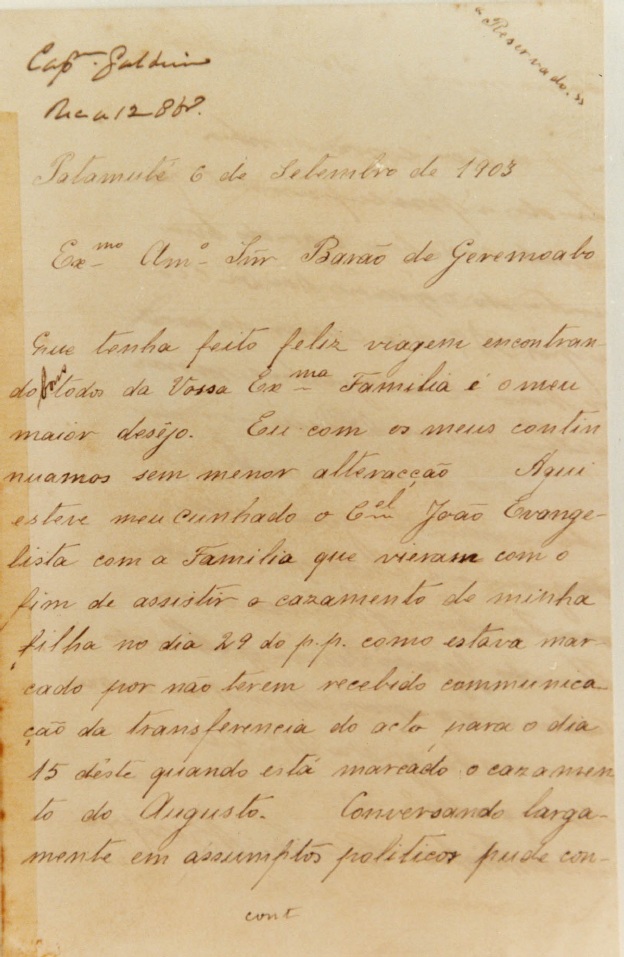 "Reservado."
Capm. Galdino
Patamuté 6 de Setembro de 1903
Ex.mo Am.o Snr Barão de Geremoabo
Que tenha feito feliz viagem encontran-
do bons todos da Vossa Ex.ma Familia é o meu
maior desêjo. Eu com os meus contin
nuamos sem menor alteracção Aqui
esteve meu cunhado o C.el João Evange-
lista com a Familia que vieram com o
fim de assistir o cazamento de minha
filha no dia 29 do p.p. como estava mar-
cado por não terem recebido communica-
ção da transferencia do acto, para o dia
15 dêste quando está marcado o cazamen
to do Augusto. Conversando larga-
mente em assumptos politicos pude con-
cont